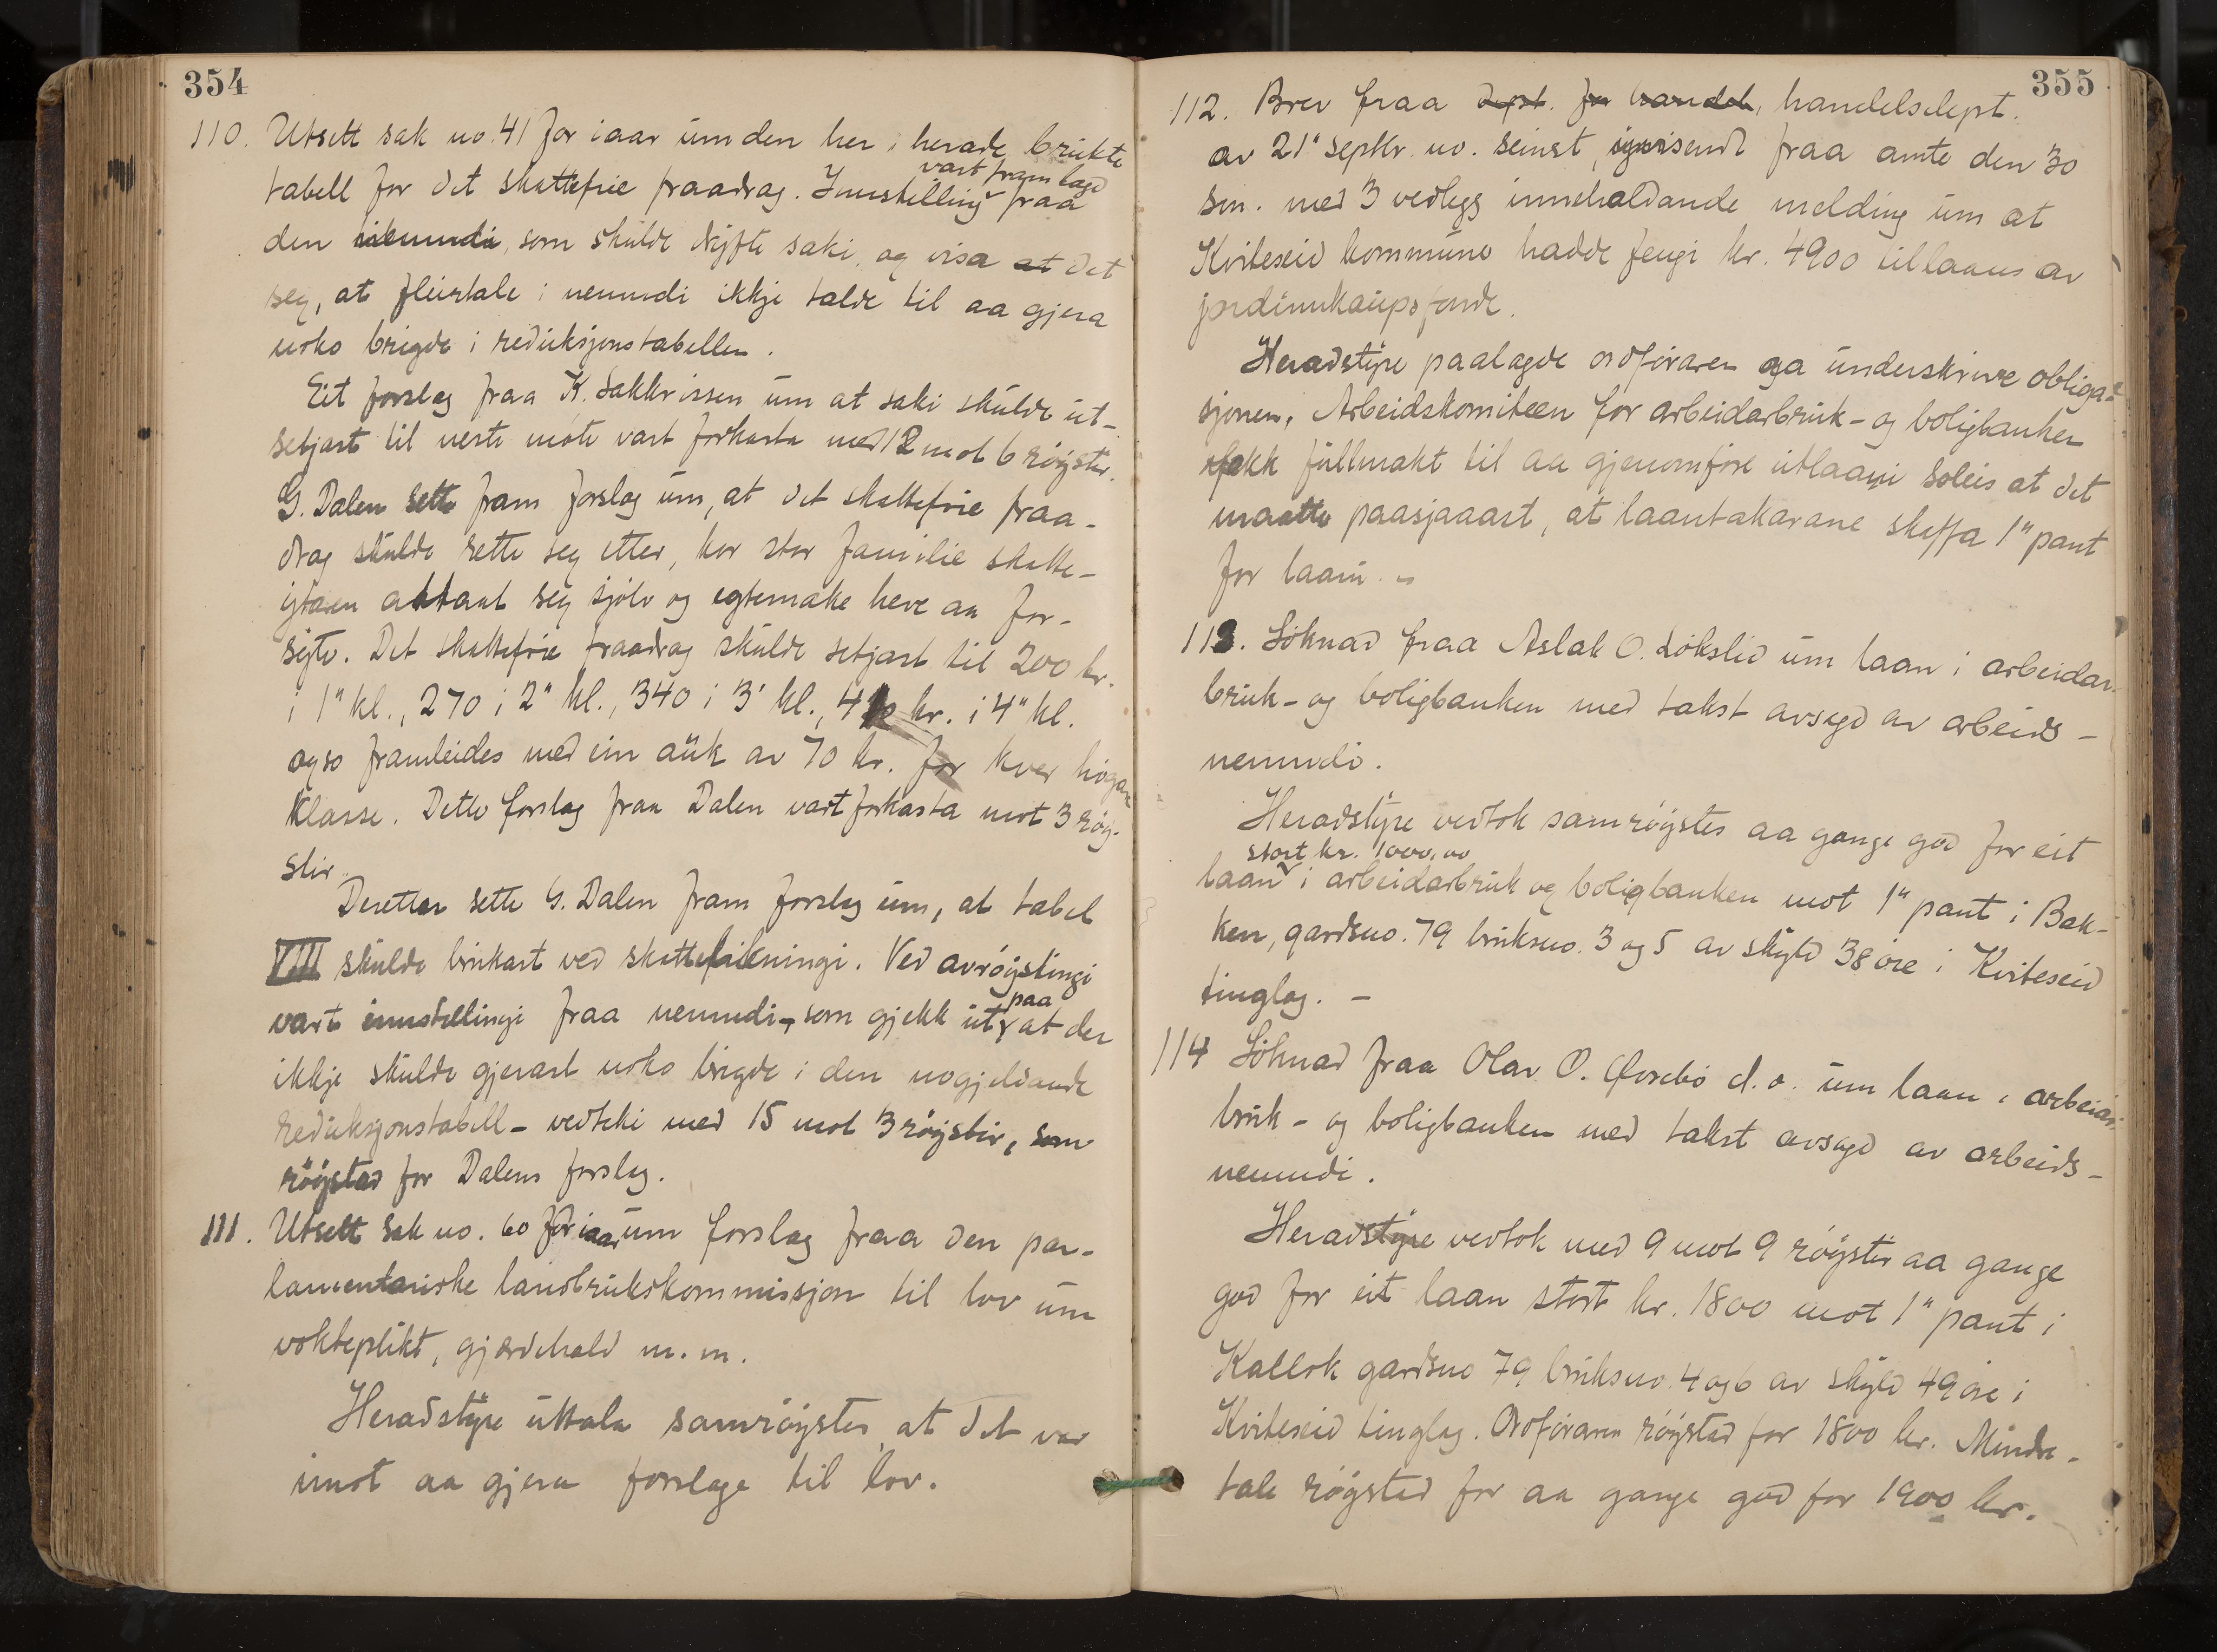 354
110. Utsett sak no. 41 for iaar um den her i herade brukte
tabell for det skattefrie fraadrag. Innstilling vart framlagd fraa
den nemndi, som skulde drøfte saki, og visa at det
seg, at fleirtale i nemndi ikkje talde til aa gjera
noko brigde i reduksjonstabellen.
Eit forslag fraa K. Sakkrissen um at saki skulde ut-
setjast til neste møte vart forkasta med 12 mot 6 røyster.
G. Dalen sette fram forslag um, at det skattefrie fraa-
drag skulde rette seg etter, kor stor familie skatte-
ytaren attaat seg sjølv og egtemake heve aa for-
syte. Det skattefrie fraadrag skulde setjast til 200 kr.
i 1" kl., 270 i 2" kl., 340 i 3' kl., 410 kr. i 4" kl.
ogso framleides med ein auk av 70 kr. for kver høgare
klasse. Dette forslag fraa Dalen vart forkasta mot 3 røy-
stir.
Deretter sette G. Dalen fram forslag um, at tabel
VIII skulde brukast ved skattelikningi. Ved avrøystingi
vart innstellingi fraa nemndi, som gjekk ut paa at der
ikkje skulde gjerast noko brigde i den nogjeldande
reduksjonstabell - vedteki med 15 mot 3 røystir, som
røystad for Dalens forslag.
111. Utsett sak no. 60 for iaar um forslag fraa den par-
lamentariske landbrukskommissjon til lov um
vokteplikt, gjærdehald m.m.
Heradstyre uttala samrøystes, at det var
imot aa gjera forslage til lov.
355
112. Brev fraa dept. for handel, handelsdept.
av 21" septbr. no. seinst, innsendt fraa amte den 30
sm. med 3 vedlegg innehaldande melding um at
Kviteseid kommune hadde fengi kr. 4900 til laans av
jordinnkaupsfonde.
Heradstyre paalagde ordføraren aa underskrive obliga-
sjonen. Arbeidskomiteen for arbeidarbruk- og boligbanken
fekk fullmakt til aa gjenomføre utlaani soleis at det
maatte paasjaaast, at laantakarane skaffa 1" pant
for laani. -
113. Søknad fraa Aslak O. Løkslid um laan i arbeidar-
bruk- og boligbanken med takst avsagd av arbeids-
nemndi.
Heradstyre vedtok samrøystes aa gange god for eit
laan stort kr. 1000,00 i arbeidarbruk og boligbanken mot 1" pant i Bak-
ken, gardsno. 79 bruksno. 3 og 5 av skyld 38 øre i Kviteseid
tinglag. -
114 Søknad fraa Olav O. Øvrebø d.o. um laan i arbeidar-
bruk- og boligbanken med takst avsagd av arbeids-
nemndi.
Heradstyre vedtok med 9 mot 9 røyster aa gange
god for eit laan stort kr. 1800 mot 1" pant i
Kallok gardsno 79 bruksno. 4 og 6 av skyld 49 øre i
Kviteseid tinglag. Ordføraren røystad for 1800 kr. Mindre-
tale røystad for aa gange god for 1900 kr.